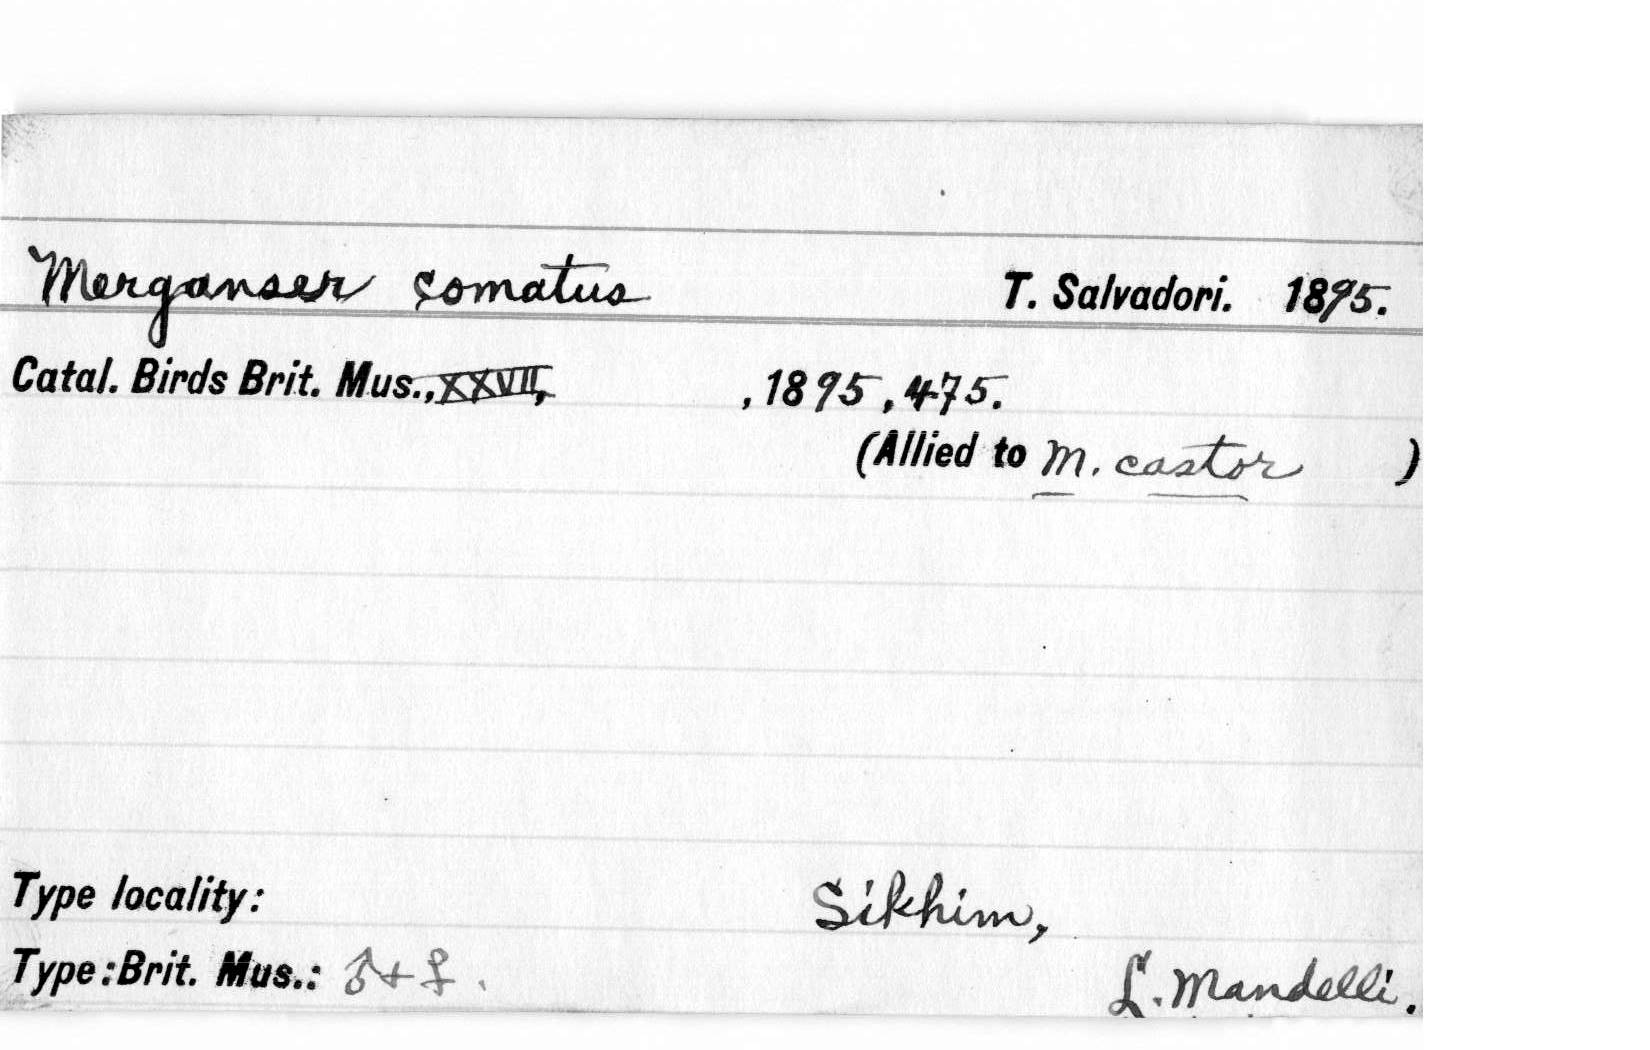 Merganser comatus T. Salvadori. 1895.
Catal. Birds Brit. Mus., XXVII, , 1895, 475.
(Allied to M. castor )
Type locality: Sikhim,
Type: Brit. Mus.: ♂+♀. L. Mandelli.